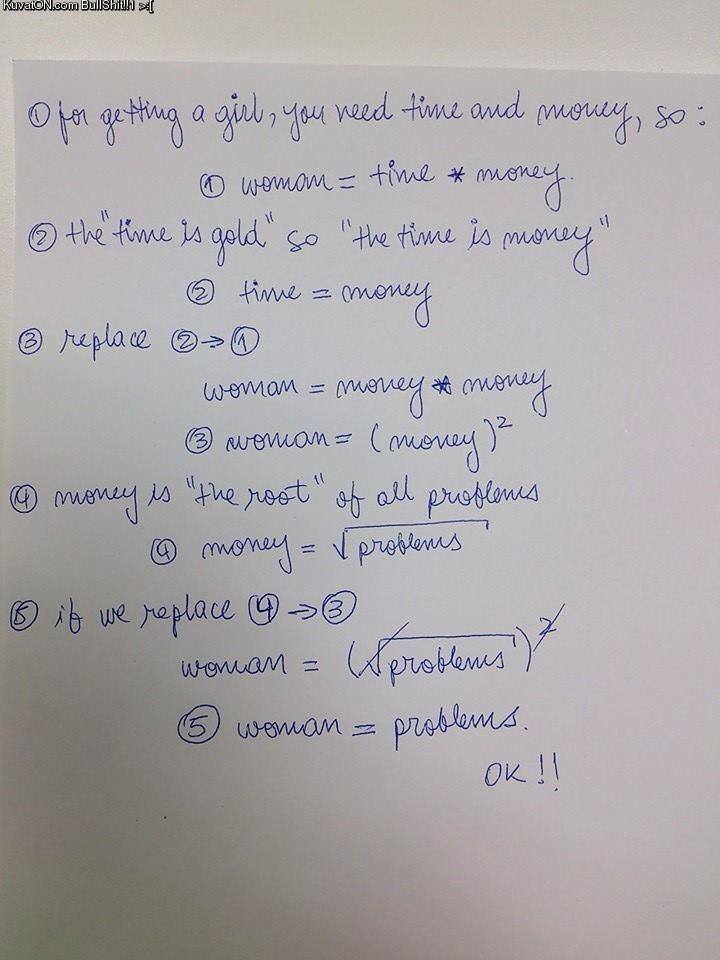 KuvatON.com BullShit!!1 >:[
① for getting a girl, you need time and money, so:
① woman = time * money.
② the "time is gold" so "the time is money"
② time = money
③ replace ② → ①
woman = money * money
③ woman = (money)²
④ money is "the root" of all problems
④ money = √problems
⑤ if we replace ④ → ③
woman = (√problems)²
⑤ woman = problems.
OK!!